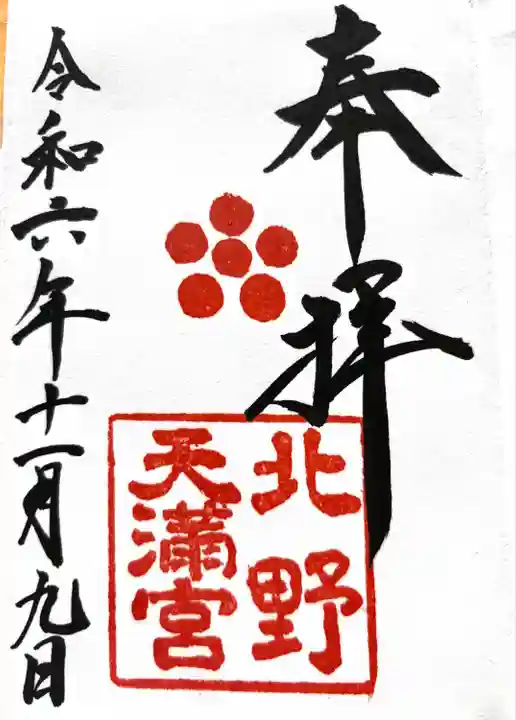 奉拝
北野
天満宮
令和六年十一月九日